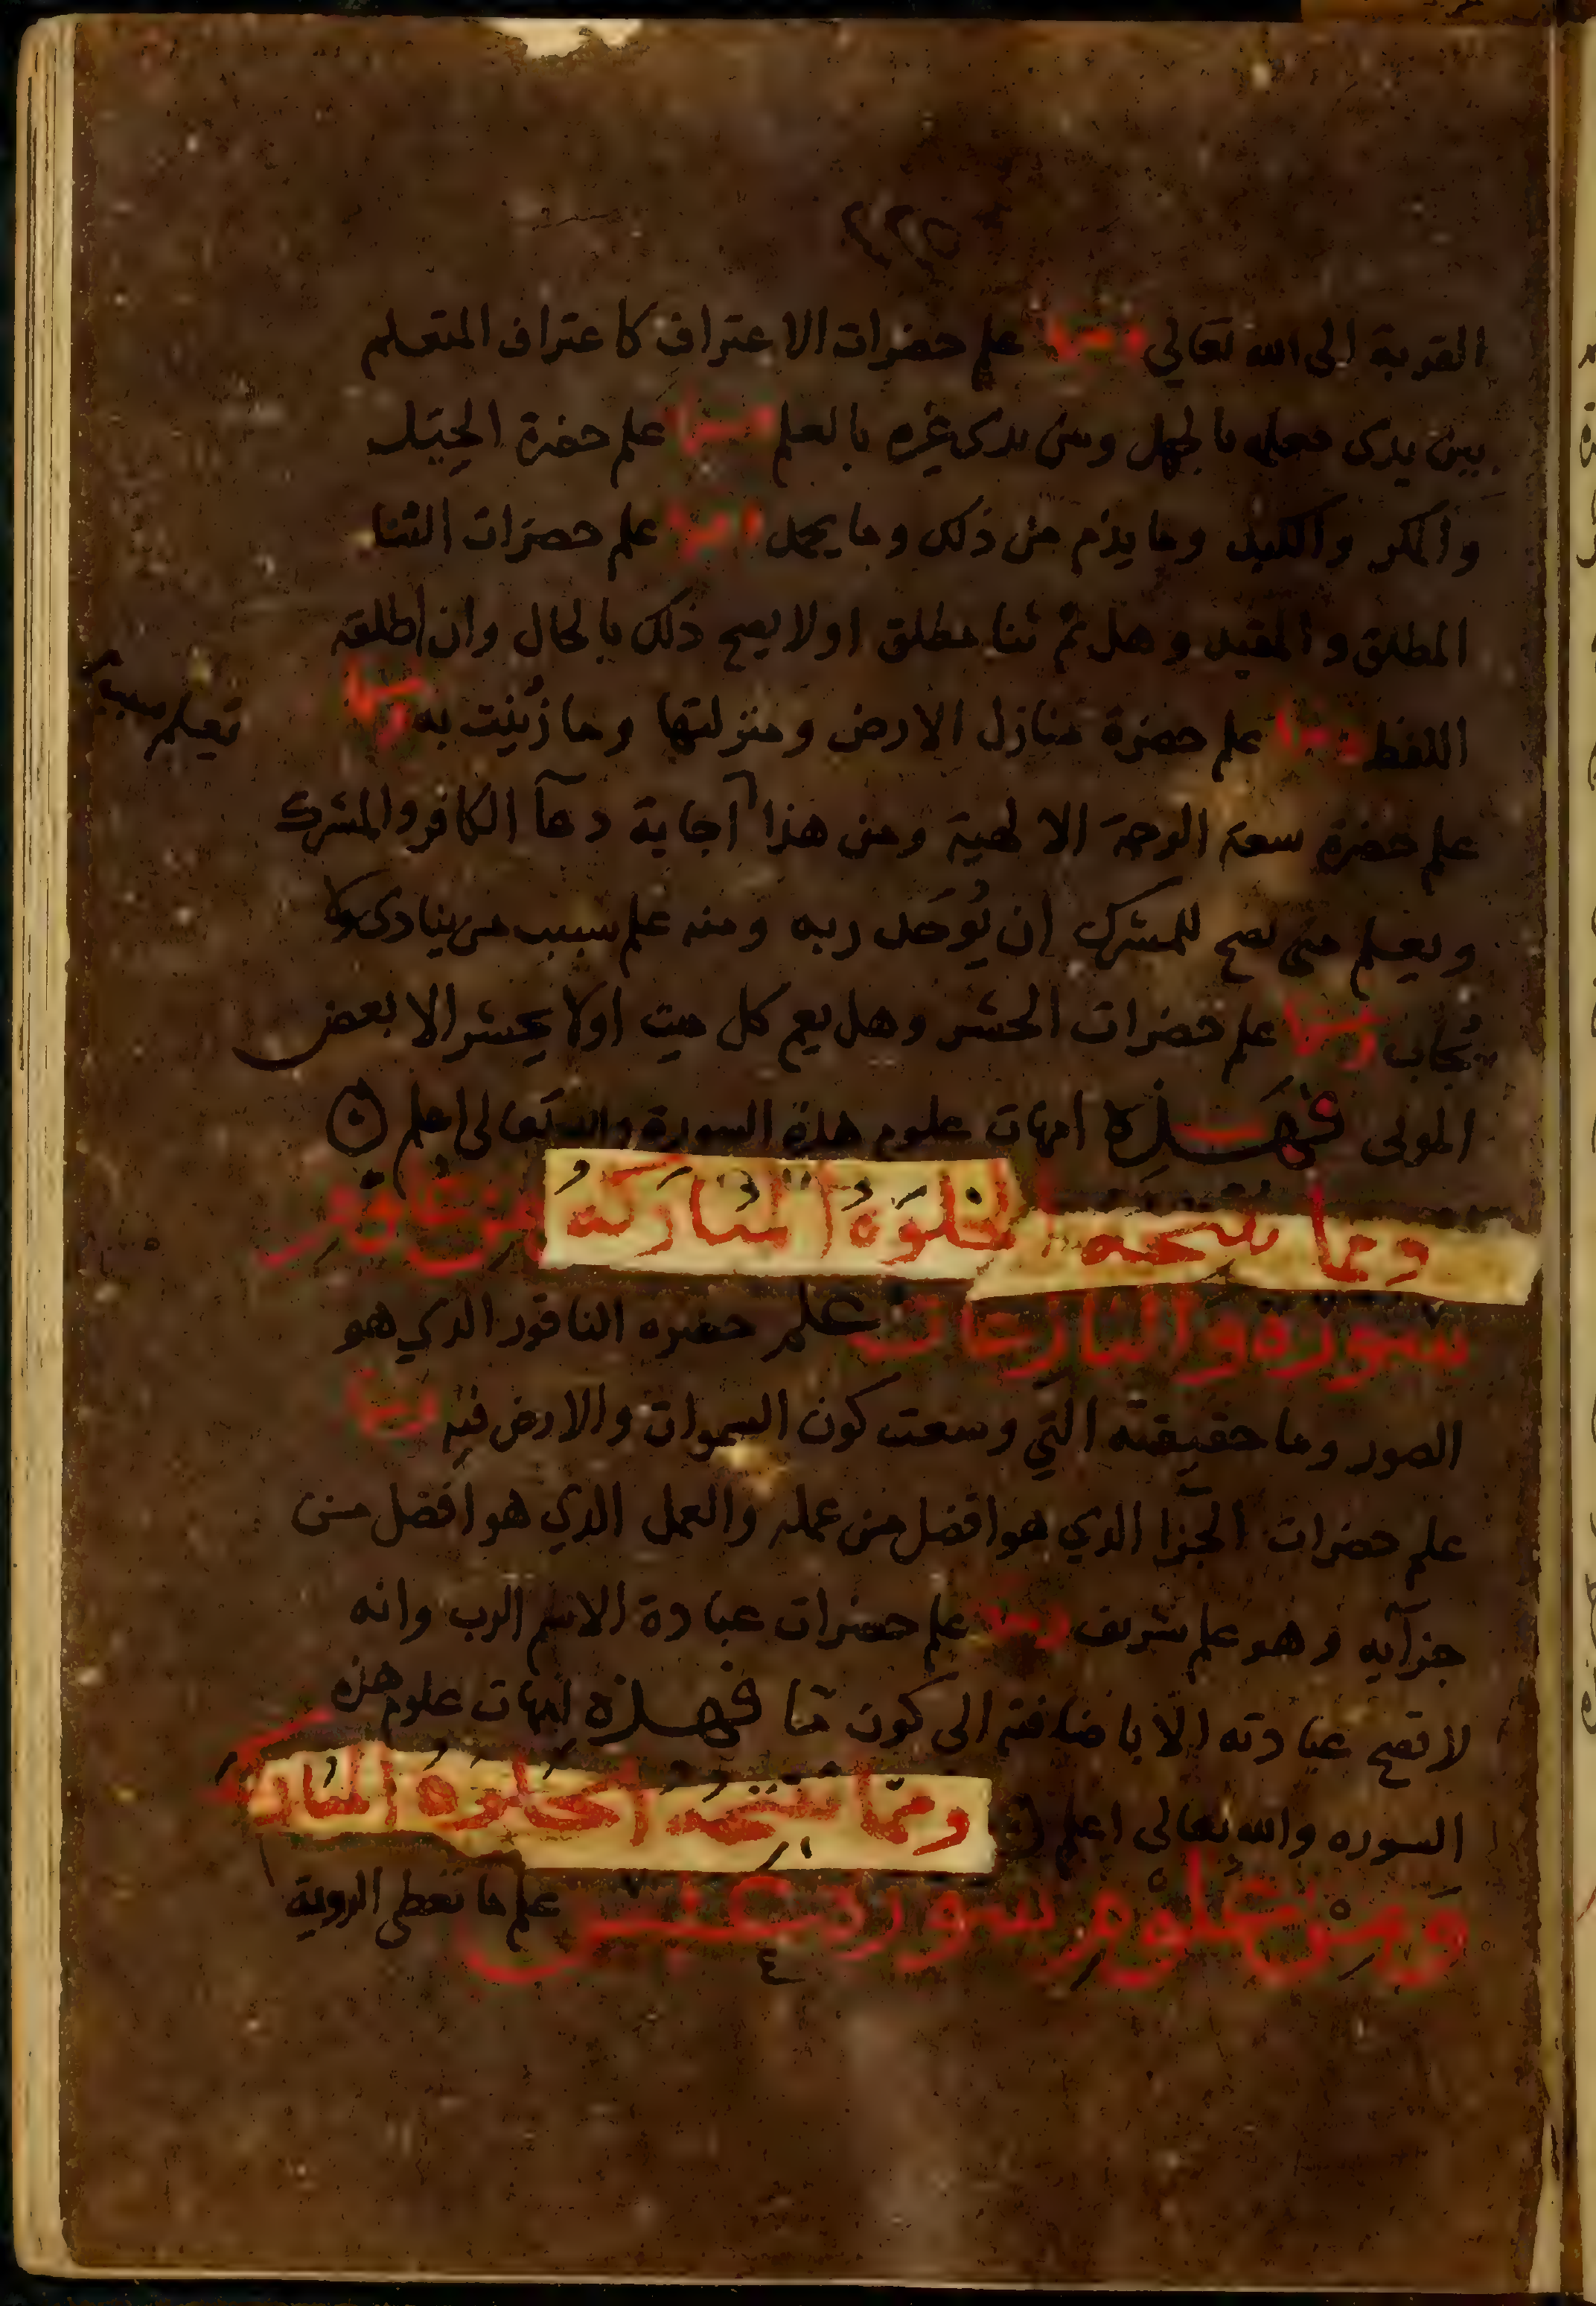 ٤٢٥
القربة الى الله تعالي ومنها علم حضرات الاعتراف كاعتراف المتعلم
بين يدى معلمه بالجهل وبين يدى غيره بالعلم ومنها علم حضرة الحِيَل
والمكر والكيد وما يذم من ذلك وما يحمد ومنها علم حضرات الثنا
المطلق والمقيد وهل ثم ثنا مطلق اولا يصح ذلك بالحال وان اطلقه
اللفظ ومنها علم حضرة منازل الارض ومنزلتها وما زُيّنت به ومنها
علم حضرة سعة الرحمة الالهية ومن هذا آجابة دعآ الكافر والمشرك
ويعلم متى يصح للمشرك ان يُوَحد ربه ومنه علم سبب من ينادى ولا
يُجاب ومنها علم حضرات الحشر وهل يعم كل ميت اولا يحشر الا بعض
الموتى فهذه امهات علوم هذه السورة والله تعالى اعلم
ومما تنتجه الخلوة المباركة من علوم
سورة والنازعات علم حضره الناقور الذي هو
الصور وما حقيقته التي وسعت كون السموات والارض فيه ومنها
علم حضرات الجزا الذي هو افضل من عمله والعمل الذي هو افضل من
جزآيه وهو علم شريف ومنها علم حضرات عبادة الاسم الرب وانه
لا تصح عبادته الّا باضافته الى كون مّا فهذه امهات علوم هذه
السوره والله تعالى اعلم ومما تنتجه الخلوة المباركة
ومن علوم سورة عبس علم ما تعطى الروية